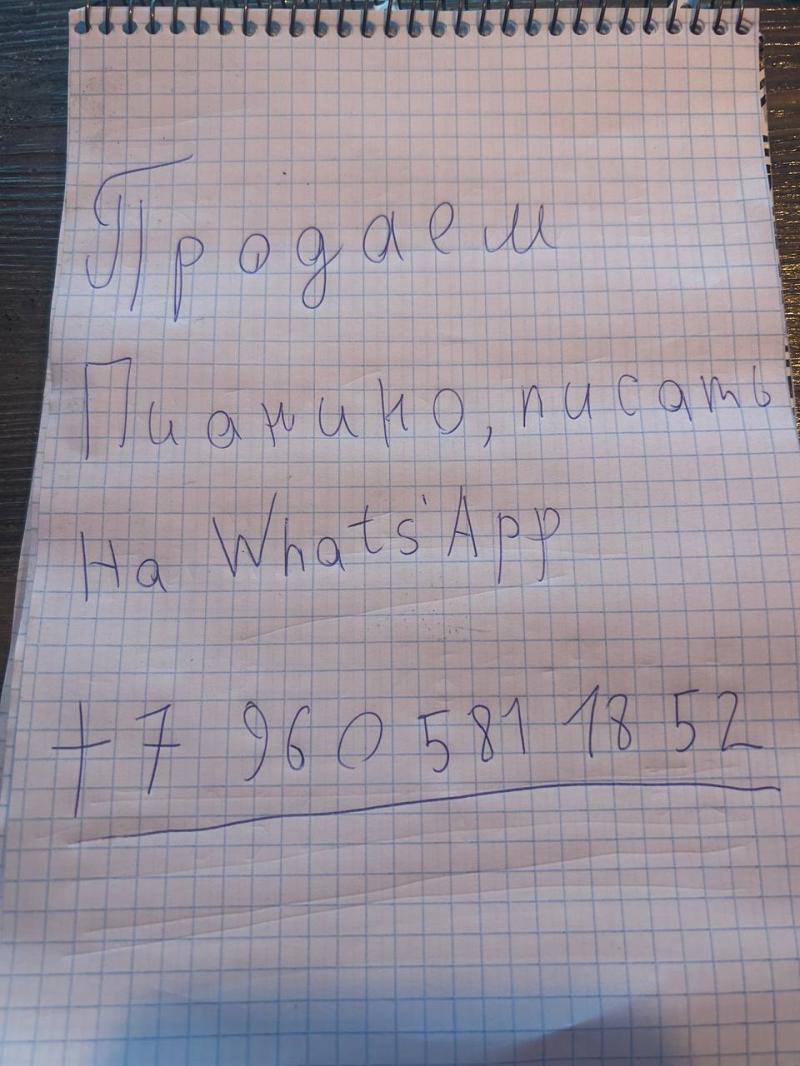 Продаем
Пианино, писать
на Whats'App
+7 960 581 18 52